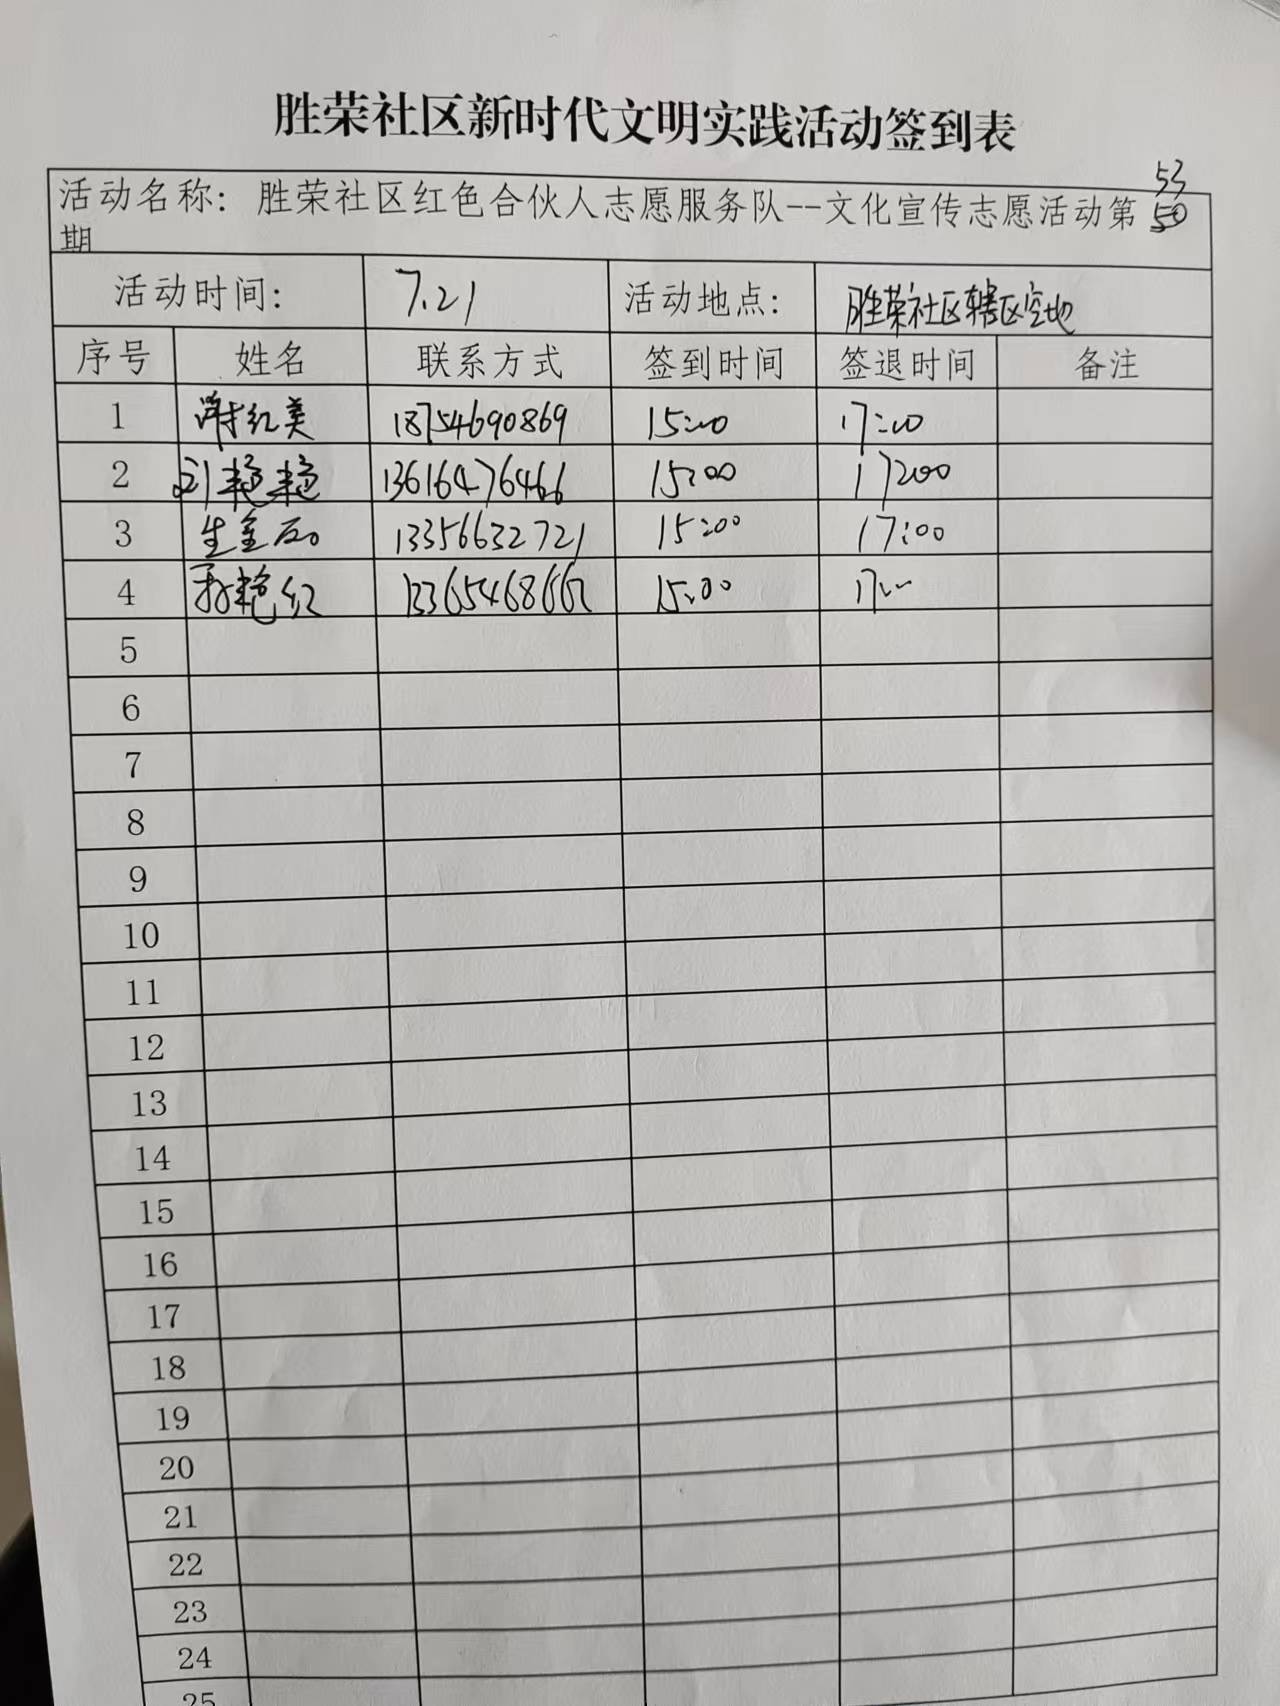 胜荣社区新时代文明实践活动签到表
活动名称：胜荣社区红色合伙人志愿服务队--文化宣传志愿活动第 53
期
活动时间： 7.21 活动地点： 胜荣社区辖区空地
序号 姓名 联系方式 签到时间 签退时间 备注
1 谢红美 18754690869 15:00 17:00
2 刘艳艳 13616476466 15:00 17:00
3 13356632721 15:00 17:00
4 孙艳红 15:00 17:00
5
6
7
8
9
10
11
12
13
14
15
16
17
18
19
20
21
22
23
24
25